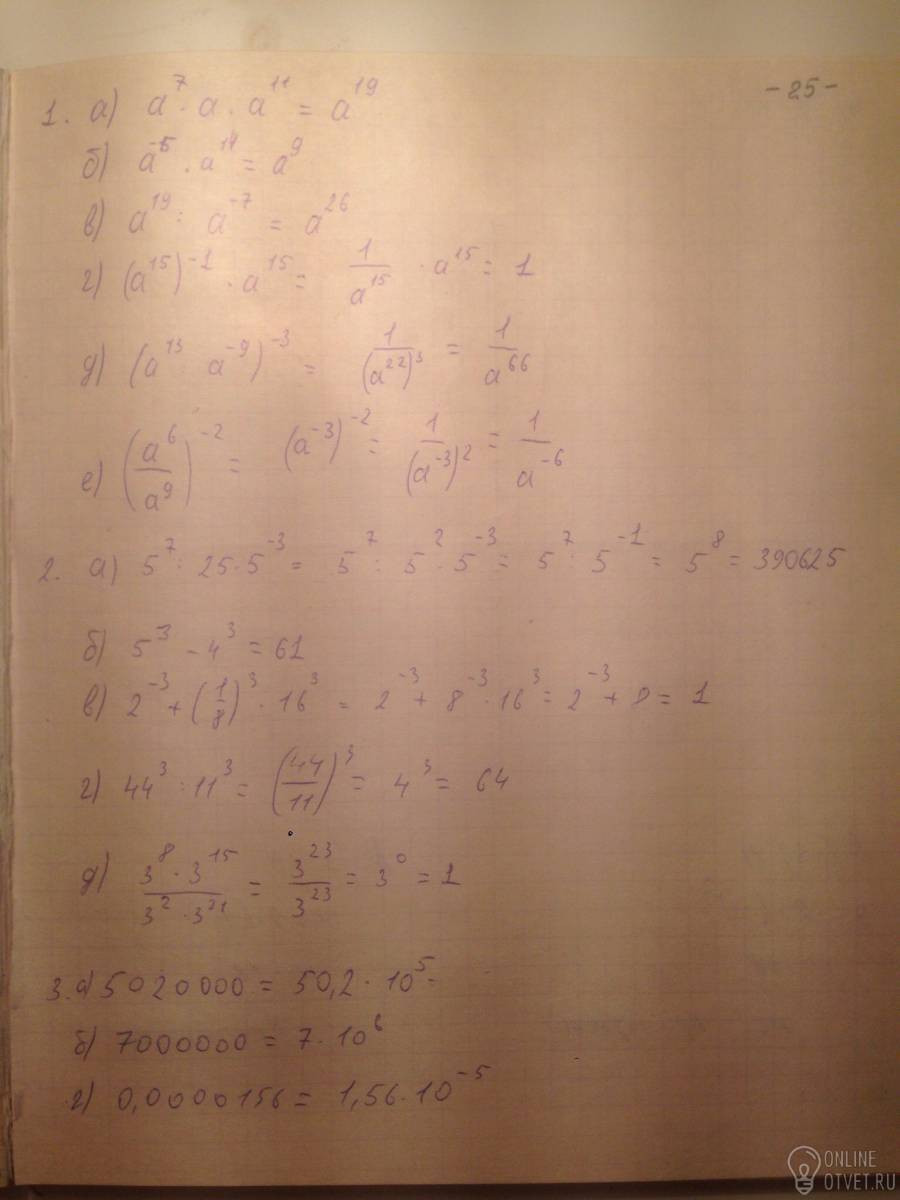 - 25 -
1. а) a⁷ · a · a¹¹ = a¹⁹
б) a⁻⁵ · a¹⁴ = a⁹
в) a¹⁹ : a⁻⁷ = a²⁶
г) (a¹⁵)⁻¹ · a¹⁵ = 1/a¹⁵ · a¹⁵ = 1
д) (a¹³ a⁻⁹)⁻³ = 1/(a²²)³ = 1/a⁶⁶
е) (a⁶/a⁹)⁻² = (a⁻³)⁻² = 1/(a⁻³)² = 1/a⁻⁶
2. а) 5⁷ : 25 · 5⁻³ = 5⁷ : 5² · 5⁻³ = 5⁷ : 5⁻¹ = 5⁸ = 390625
б) 5³ - 4³ = 61
в) 2⁻³ + (1/8)³ · 16³ = 2⁻³ + 8⁻³ · 16³ = 2⁻³ + 8 = 1
г) 44³ : 11³ = (44/11)³ = 4³ = 64
д) 3⁸ · 3¹⁵/3² · 3²¹ = 3²³/3²³ = 3⁰ = 1
3. а) 5020000 = 50,2 · 10⁵ =
б) 7000000 = 7 · 10⁶
г) 0,0000156 = 1,56 · 10⁻⁵
ONLINE
OTVET.RU